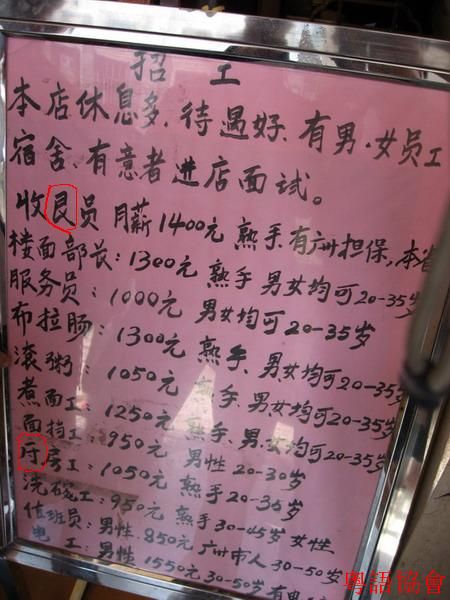 招 工
本店休息多、待遇好、有男·女员工
宿舍、有意者进店面试。
收艮员 月薪1400元 熟手 有广州担保,本省
楼面部长:1300元 熟手 男女均可20-35岁
服务员:1000元 男女均可20-35岁
布拉肠:1300元 熟手、男女均可20-35岁
滚粥:1050元 熟手、男女均可20-35岁
煮面工:1250元 熟手、男、女均可20-35岁
面挡工:950元 男性20-30岁
房工:1050元 熟手20-35岁
洗碗工:950元 熟手30-45岁 女性
值班员:男性 850元 广州市人30-50岁
电 工:男性 1550元 30-50岁 有
粤語協會